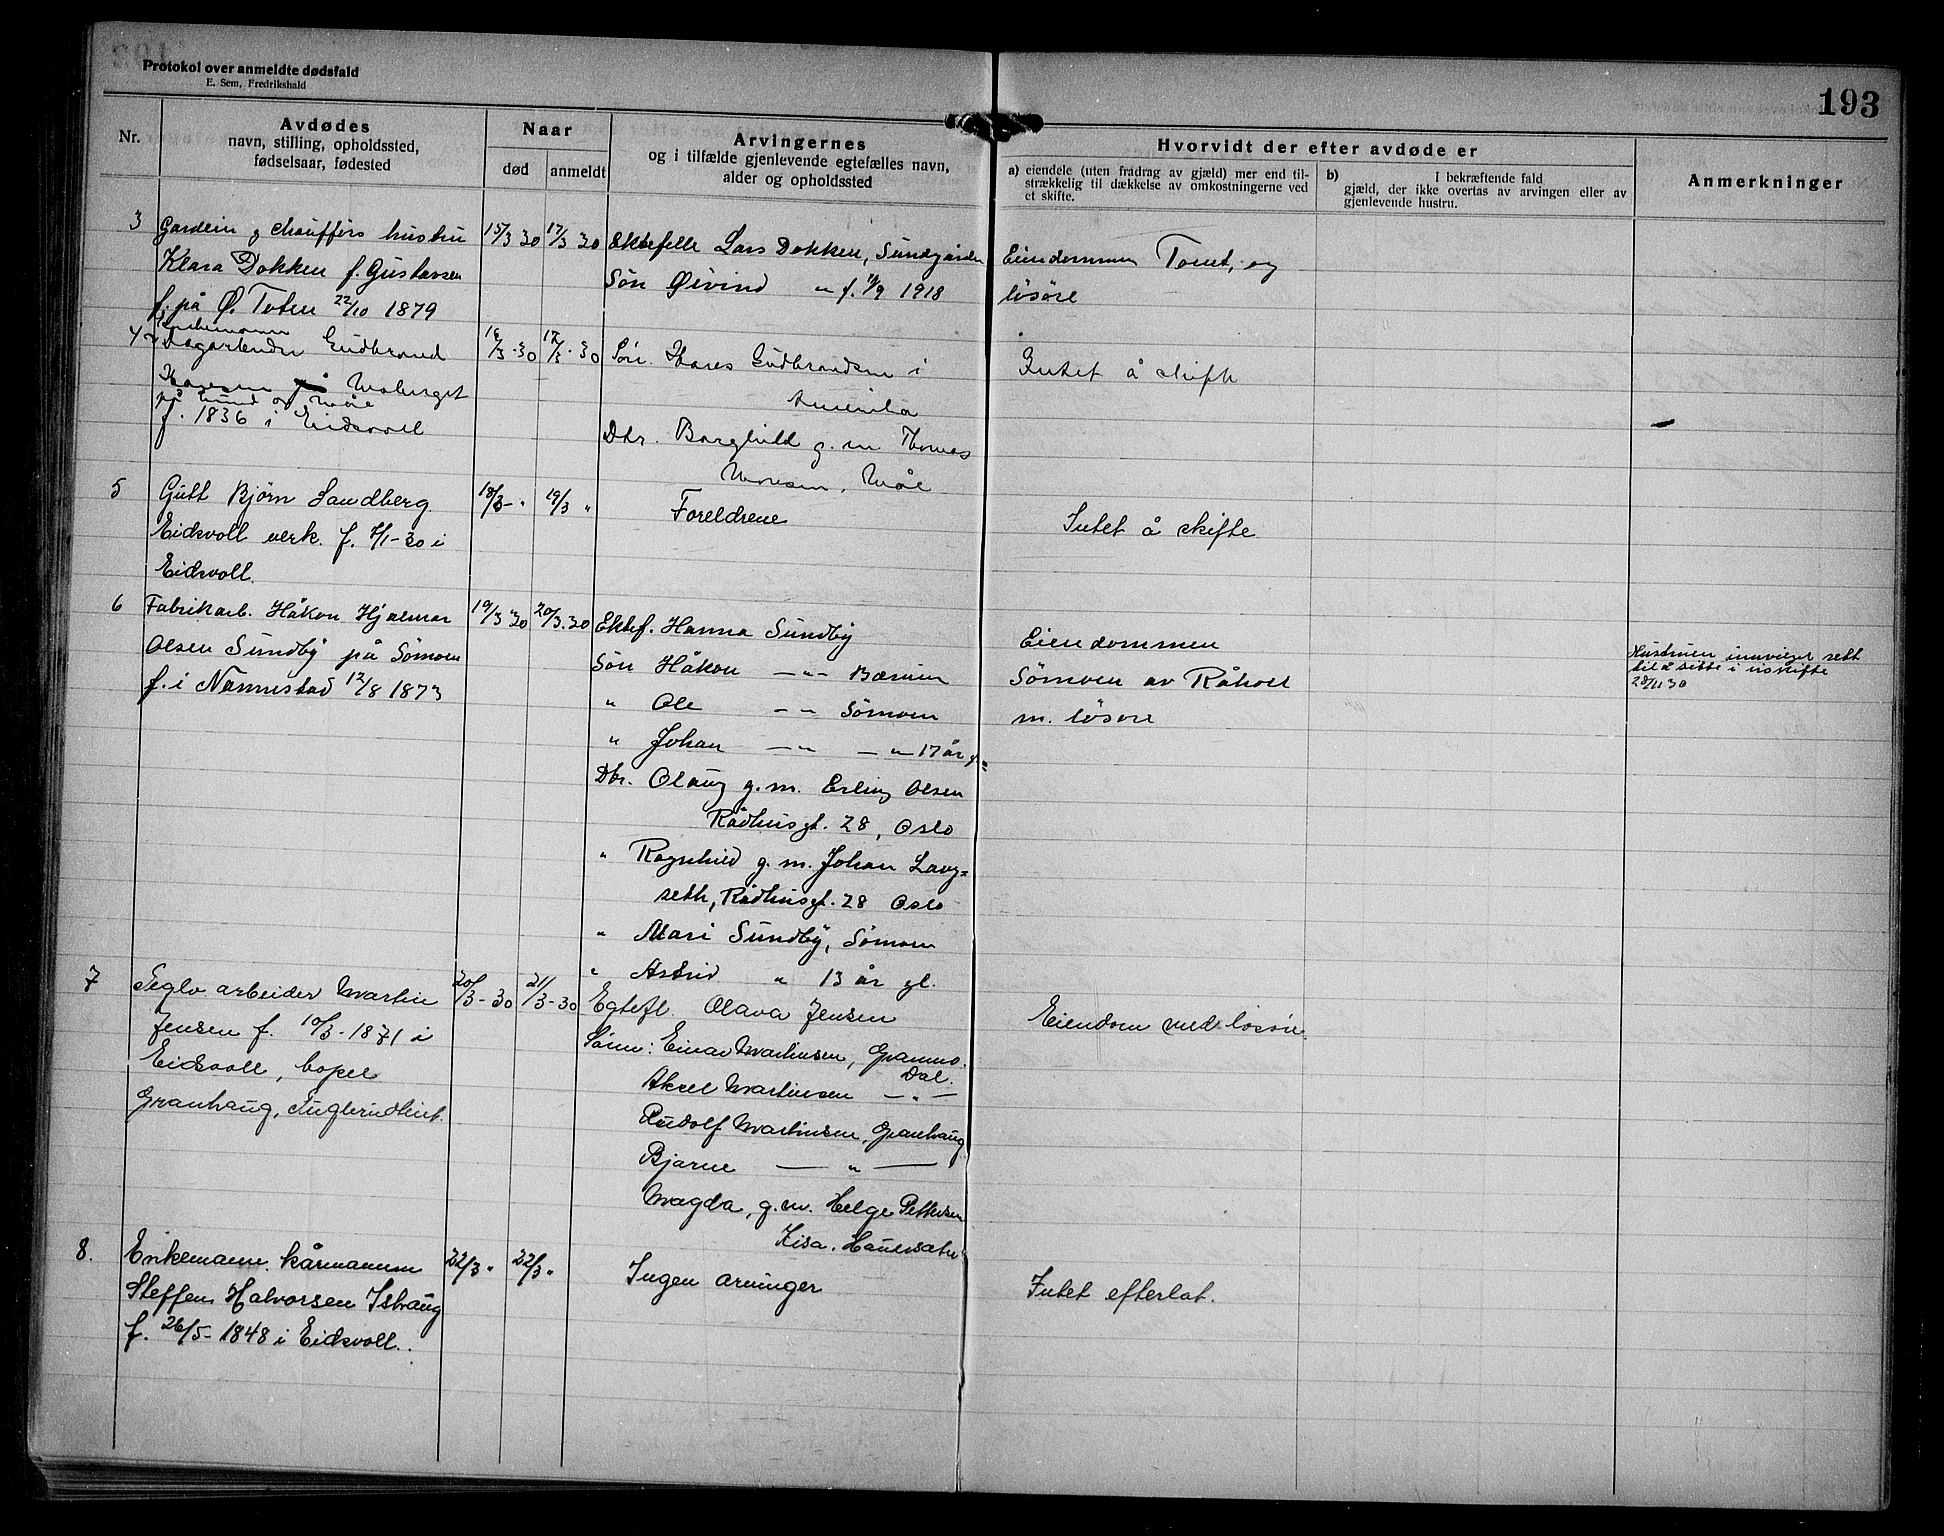 Protokol over anmeldte dødsfald
E. Sem, Fredrikshald
193
Nr.
Avdødes
navn, stilling, opholdssted,
fødselsaar, fødested
Naar
død
anmeldt
Arvingernes
og i tilfælde gjenlevende egtefælles navn,
alder og opholdssted
Hvorvidt der efter avdøde er
a) eiendele (uten fradrag av gjæld) mer end til-
strækkelig til dækkelse av omkostningerne ved
et skifte.
b) I bekræftende fald
gjæld, der ikke overtas av arvingen eller av
gjenlevende hustru.
Anmerkninger
3 Gardein & chaufførs hustru 15/3 30 17/3 30 Ektefelle Lars Dokken, Sundgården
Klara Dokken f. Gustavsen Søn Øivind " f. 1918
f. på Ø. Toten 22/10 1879
Eiendommen Tomt, og
løsøre
4 Enkemann
Dagarbeider Gudbrand 16/3-30 17/3-30 Søn. Hans Gudbrandsen i
Amerika
på Lund
f. 1836 i Eidsvoll
Dtr. Borghild g. m Thomas
Intet å skifte
5 Gutt Bjørn Sandberg 18/3- " 19/3 " Foreldrene
Eidsvoll verk. f. 1/1-30 i
Eidsvoll.
Intet å skifte
6 Fabrikarb. Håkon Hjalmar 19/3 30 20/3.30 Ektef. Hanna Sundby
Olsen Sundby på Sømoen Søn Håkon —"— Bærum
f. i Nannestad 12/8 1873 " Ole —"— Sømoen
" Johan —"— —"— 17 år gl.
Dtr. Olaug g. m. Erling Olsen
Rådhusgt. 28, Oslo
" Ragnhild g. m. Johan Lang=
seth, Rådhusgt. 28 Oslo
" Mari Sundby, Sømoen
" Astrid " 13 år gl.
Eiendommen
Sømoen av Råholt
m. løsøre
Hustruen innvilget rett
til å sitte i uskifte
28/11 30
7 Teglv. arbeider Martin 20/3-30 21/3-30 Egtefl. Olava Jensen
Jensen f. 10/3-1871 i Sønn: Einar Martinsen, Grammo.
Eidsvoll, bopel Dal.
Aksel Martinsen —"—
Granhaug, Rudolf Martinsen, Granhaug
Bjarne —"—
Magda, g. m. Helge Pettersen
Kisa.
Eiendom med løsøre
8. Enkemann kårmann 22/3 " 22/3 " Ingen arvinger
Steffen Halvorsen Ishaug
f. 26/5-1848 i Eidsvoll.
Intet efterlat.